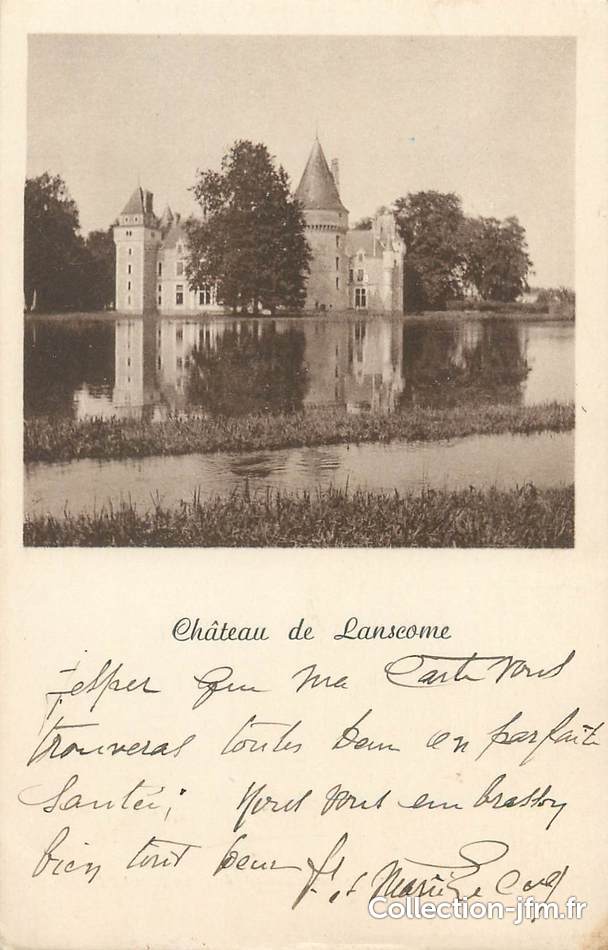 Château de Lanscome
j'esper que ma Carte vous
trouveras toutes deux en parfait
Santéé; Nous vous embrasson
bien tout deux
Collection-jfm.fr